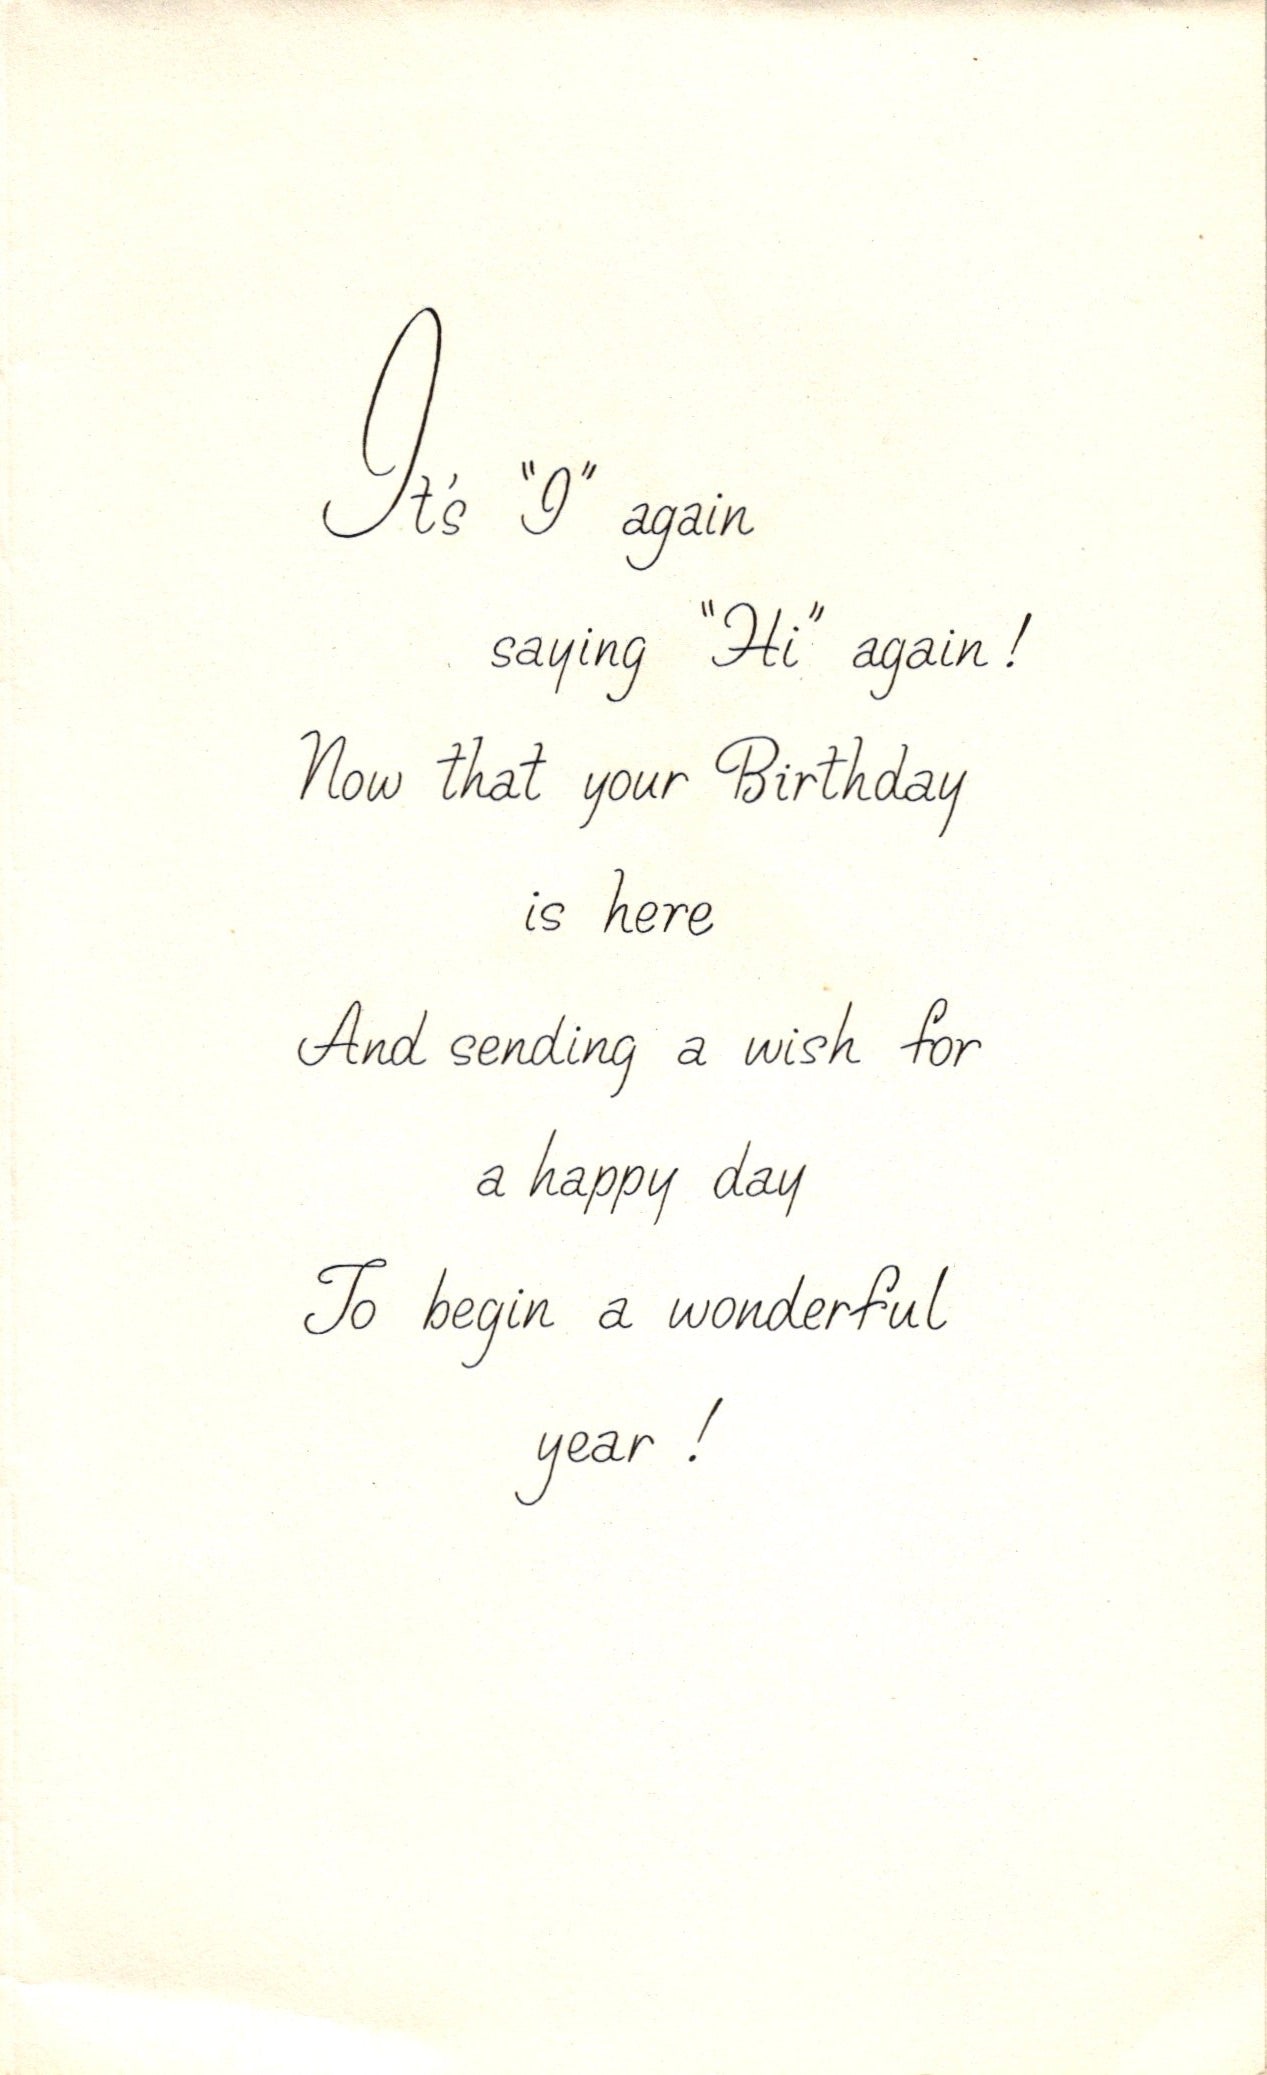 It's "I" again
saying "Hi" again!
Now that your Birthday
is here
And sending a wish for
a happy day
To begin a wonderful
year!